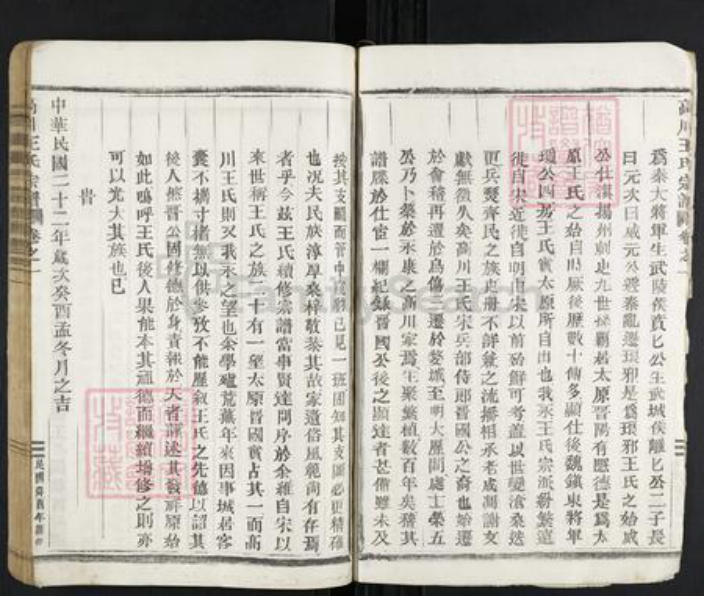 高川王氏宗譜 卷之一
爲秦大將軍生武陵侯賁匕公生武城侯離匕公二子長
曰元次曰威元公避秦亂遷瑯邪是爲琅邪王氏之始威
公仕漢揚州刺史九世孫覇居太原晉陽有懿德是爲太
原王氏之始自時厥後歷數十傳多顯仕後魏鎮東將軍
瓊公四房王氏實太原所自出也我永王氏宗派紛繁遠
徙自宋近徙自明由宋以前殆鮮可考蓋以世變滄桑然
更兵燹齊民之族史冊不詳兼之流播相承老成凋謝文
獻無徵久矣高川王氏宋兵部侍郎晉國公之裔也始遷
於會稽再遷於烏傷遷於婺城至明大歷間處士榮五
公乃卜築於永康之高川家焉生聚繁植數百年矣稽其
譜牒於仕宦一欄紀錄晉國公後之顯達者甚備雖未及
按其支屬而管中窺豹已見一班固知其支圖必更精確
也况夫民族淳厚桑梓敬恭其故家遺俗風範尚有存焉
者乎今茲王氏續修宗譜當事賢達問序於余雖自宋以
來世稱王氏之族二十有一望太原晉國實占其一而高
川王氏則又我永之望也余學殖荒蕪年來因事城居客
囊不攜寸楮無以供參攷不能歷叙王氏之先德以詔其
後人然晉公固修德於身責報於天者謹述其發祥原始
如此嗚呼王氏後人果能本其祖德而繼續增修之則亦
可以光大其族也已
旹
中華民國二十二年歲次癸酉孟冬月之吉
高川王氏宗譜 卷之一